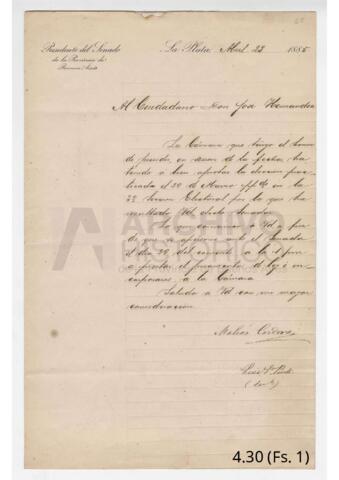 Presidente del Senado
de la Provincia de
Buenos Aires
La Plata, Abril 23 1885
Al Ciudadano Don José Hernandez
La Cámara que tengo el honor
de presidir, en sesion de la fecha, ha
tenido a bien aprobar la eleccion prac
ticada el 29 de Marzo ppdo en la
Seccion Electoral por la que ha
resultado Vd electo Senador.
Lo que comunico a Vd a fin
de que se
el día 29 del corriente a la 1 p.m.
a prestar el juramento de ley é in
corporarse a la Cámara
Saluda a Vd con mi mayor
consideracion
ARCHIVO
HISTÓRICO
4.30 (Fs. 1)